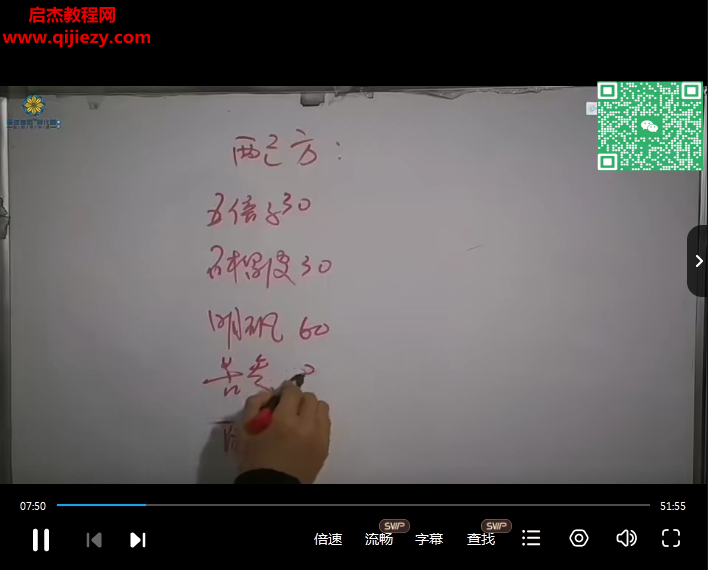 启杰教程网
www.qijiezy.com
配方:
五倍子30
石榴皮30
明矾 60
苦参
07:50
51:55
倍速
流畅
SVIP
字幕
查找
SVIP